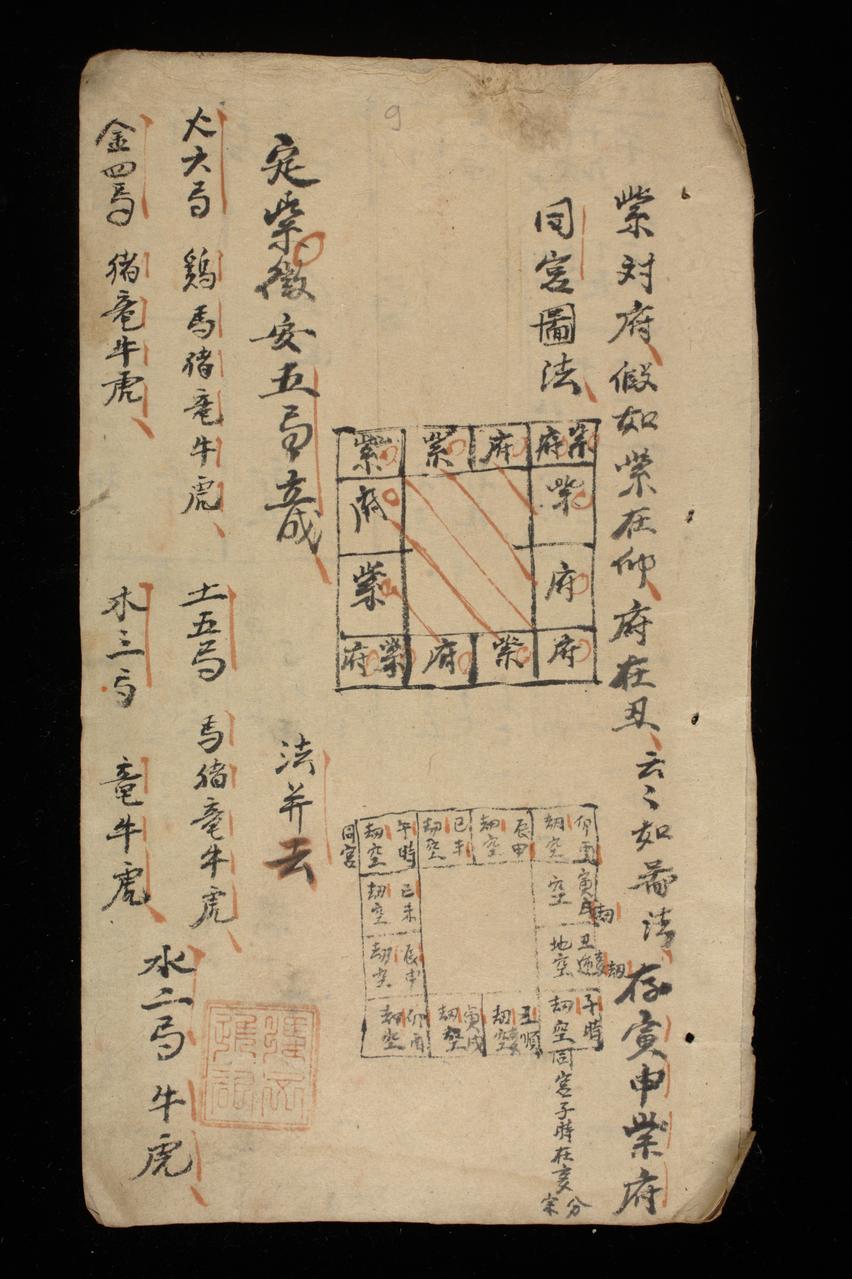 紫对府假如紫在卯府在丑云〻如啚法存寅申紫府
同宮圖法
紫 紫 府 府紫
府 紫
紫 府
府紫 府 紫 府
同宮 劫空午時 劫空巳未 劫空辰申 劫空卯
劫空巳未 空寅 劫
劫空辰申 地空丑 劫
劫空卯酉 劫空寅戌 劫空丑順 劫空子時
同宮子時在亥
定紫微安五局立成 法并云
火六局 鷄馬猪竜牛虎 土五局 馬猪竜牛虎
金四局 猪竜牛虎 木三局 竜牛虎
水二局 牛虎
9